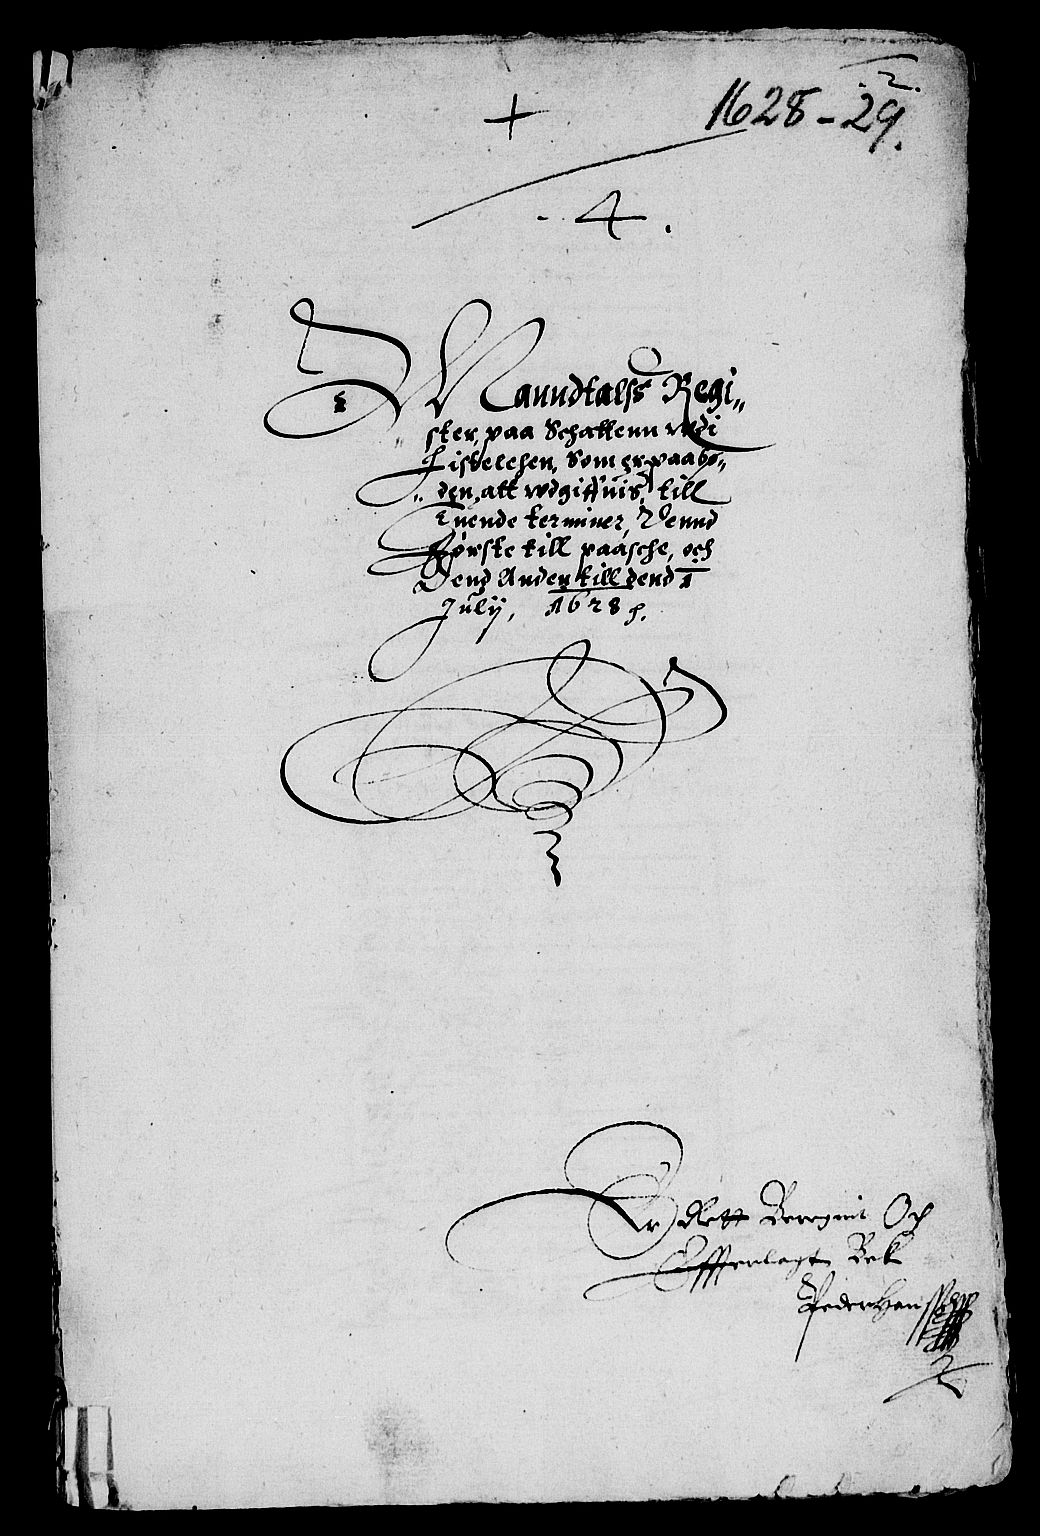 2.
1628-29.
+
4.
Manndtalss Regi„
ster, paa Schattenn vdi
Listelehen, Som er paabö„
„den att vdgiffuis, till
Tuende terminer, Dennd
første till paasche, och
Dend Anden till dend 1
July, 1628
Er Rett Beregnit Och
Offuerlagt Bek
Peder Hanss